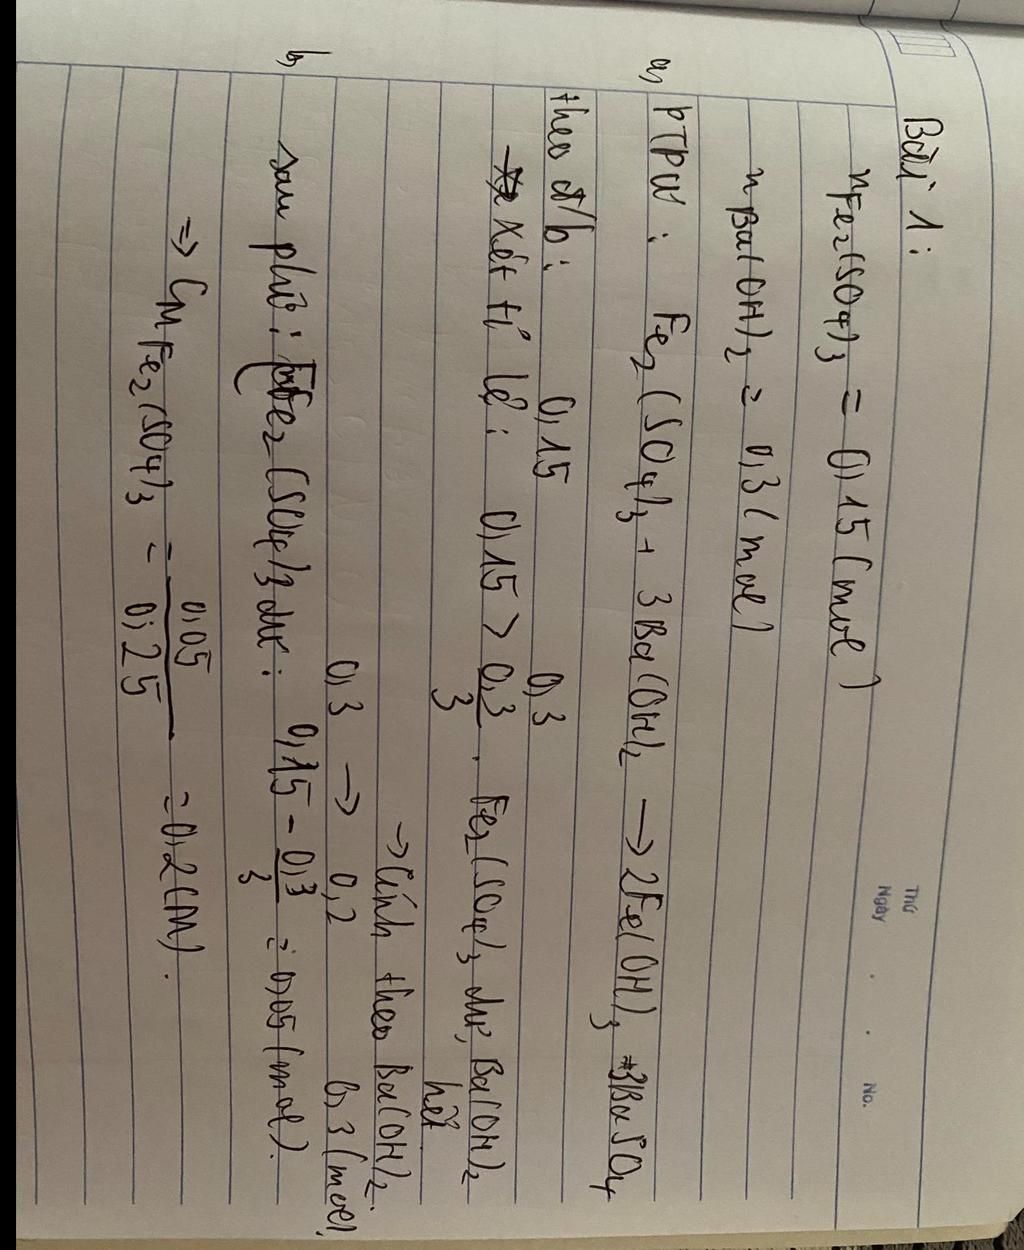 Thứ
Ngày . . No.
Bài 1:
nFe2(SO4)3 = 0,15 (mol)
nBa(OH)2 = 0,3 (mol)
a, PTPƯ: Fe2(SO4)3 + 3Ba(OH)2 → 2Fe(OH)3 + 3BaSO4
theo đ/b: 0,15 0,3
Xét tỉ lệ: 0,15 > 0,3/3 . Fe2(SO4)3 dư, Ba(OH)2 hết
→ tính theo Ba(OH)2.
0,3 → 0,2 0,3 (mol)
b, sau phứ: Fe2(SO4)3 dư: 0,15 - 0,3/3 = 0,05 (mol).
=> CM Fe2(SO4)3 = 0,05/0,25 = 0,2 (M).